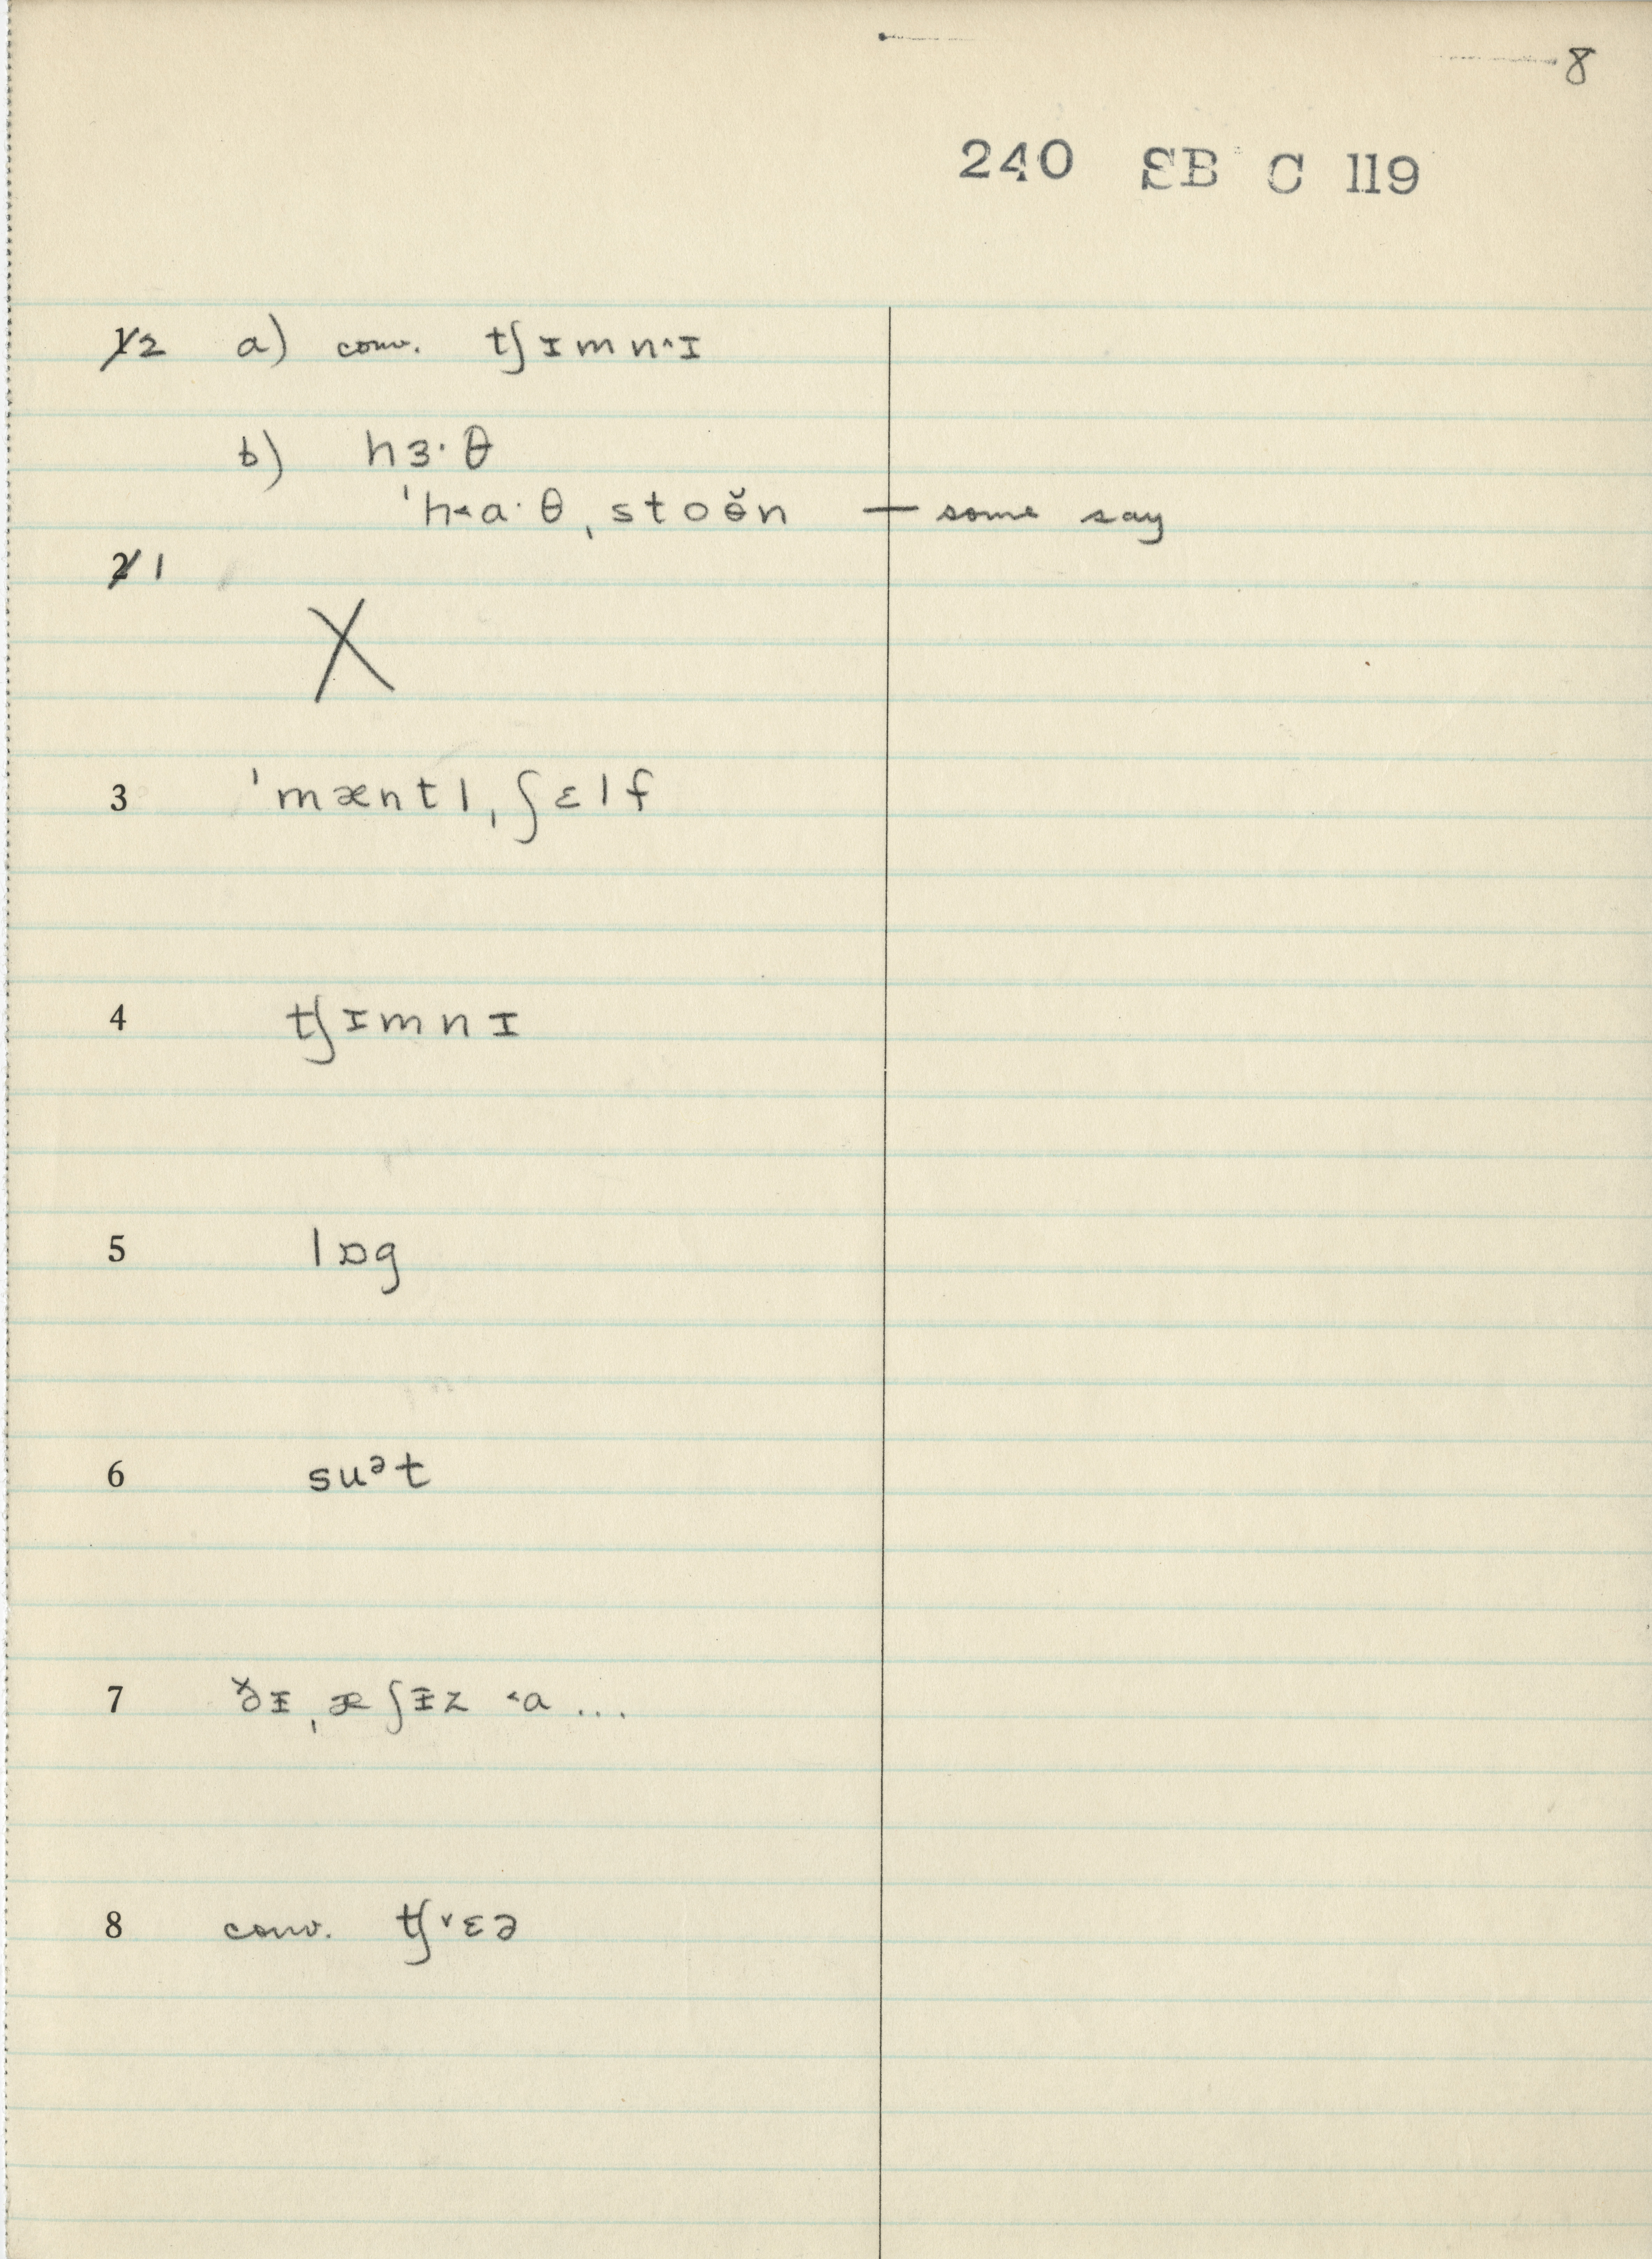 8
240 SB C 119
1 2 a) conv. tʃɪmn^ɪ
b) hɜ·θ
ˈh˂a·θˌstoə̆n — some say
2 1
X
3 ˈmæntlˌʃɛlf
4 tʃɪmnɪ
5 lɒg
6 suᵊt
7 ðɪˌæʃɪ̵z ˂a ...
8 conv. tʃ˅ɛə